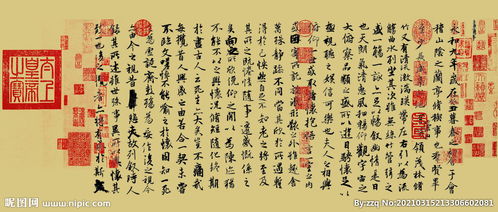 永和九年歲在癸丑暮春之初于會
稽山陰之蘭亭脩稧事也群賢畢
至少長咸集此地有崇山峻領茂林脩
竹又有清流激湍暎帶左右引以為流
觴曲水列坐其次雖無絲竹管弦之
盛一觴一詠亦足以暢敘幽情是日
也天朗氣清惠風和暢仰觀宇宙之
大俯察品類之盛所以遊目騁懷足以
極視聽之娛信可樂也夫人之相與
俯仰一世或取諸懷抱悟言一室之內
或因寄所託放浪形骸之外雖趣舍
萬殊靜躁不同當其欣於所遇暫
得於己快然自足不知老之將至及
其所之既惓情隨事遷感慨係之
矣向之所欣俛仰之間以為陳迹猶
不能不以之興懷況脩短隨化終期
於盡古人云死生亦大矣豈不痛哉
每攬昔人興感之由若合一契未嘗
不臨文嗟悼不能喻之於懷固知一死
生為虛誕齊彭殤為妄作後之視今
亦由今之視昔悲夫故列敘時人
錄其所述雖世殊事異所以興懷
其致一也後之攬者亦將有感於斯
太上皇帝之寶
昵图网
www.nipic.com
By:zzq No:20210315213306602081